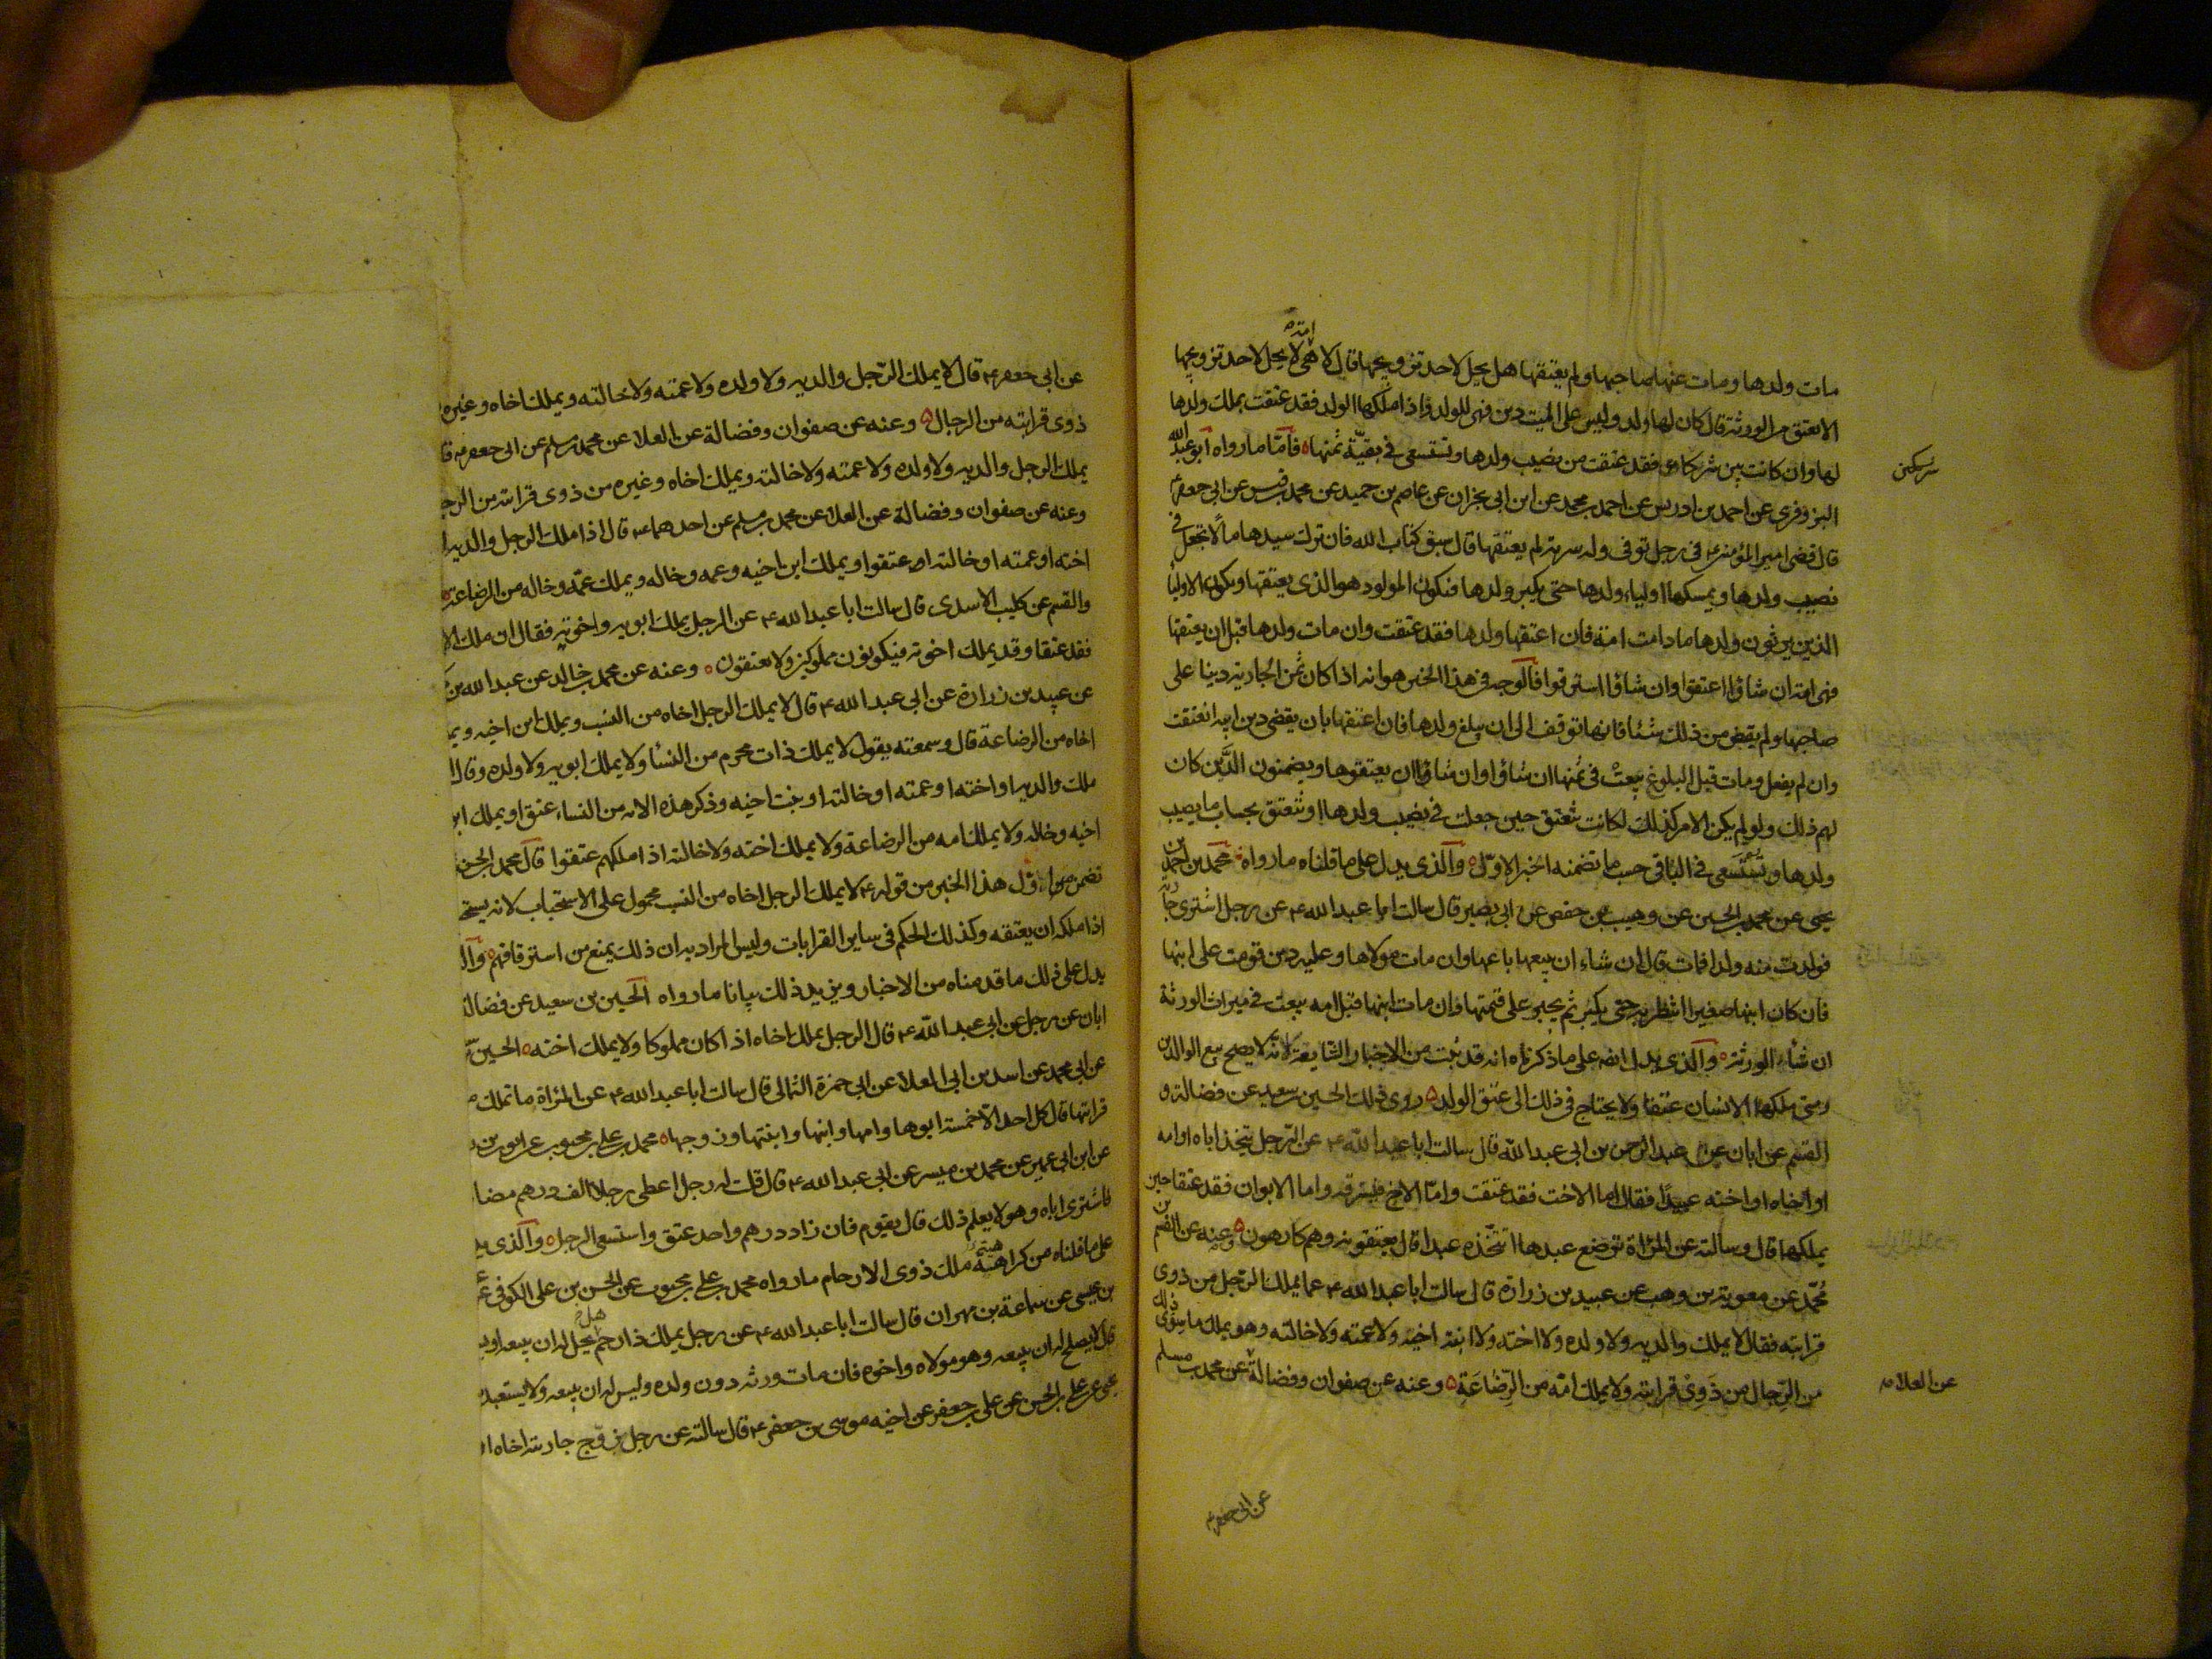 امته
مات ولدها ومات عنها صاحبها ولم يعتقها هل يحل لاحد تزويجها قال لا هى لا يحل لاحد تزويجها
الا بعتق من الورثة قال كان لها ولد وليس على الميت دين فهى للولد واذا ملكها الولد فقد عتقت بملك ولدها
لها وان كانت بين شركاء فقد عتقت من نصيب ولدها وتستسعى فى بقية ثمنها فاما ما رواه ابو عبد الله
شريكين
البزوفرى عن احمد بن ادريس عن احمد بن محمد عن ابن ابى نجران عن عاصم بن حميد عن محمد بن قيس عن ابى جعفر ع
قال قضى امير المؤمنين ع فى رجل توفى وله سرية لم يعتقها قال سبق كتاب الله فان ترك سيدها مالا تجعل فى
نصيب ولدها ويمسكها اولياء ولدها حتى يكبر ولدها فيكون المولود هو الذى يعتقها ويكون الاولياء
الذين يرثون ولدها ما دامت امة فان اعتقها ولدها فقد عتقت وان مات ولدها قبل ان يعتقها
فهى امة ان شاؤا اعتقوا وان شاؤا استرقوا فالوجه فى هذا الخبر هو انه اذا كان ثمن الجارية دينا على
صاحبها ولم يقض من ذلك شئا فانها توقف الى ان يبلغ ولدها فان اعتقها بان يقضى دين ابيه انعتقت
وان لم يفعل ومات قبل البلوغ بيعت فى ثمنها ان شاؤا وان شاؤا ان يعتقوها ويضمنون الدين كان
لهم ذلك ولو لم يكن الامر كذلك لكانت تنعتق حين جعلت فى نصيب ولدها او تنعتق بحساب ما يصيب
ولدها وتستسعى فى الباقى حسب ما تضمنه الخبر الاول والذى يدل على ما قلناه ما رواه محمد بن احمد بن
يحيى عن محمد بن الحسين عن وهيب بن حفص عن ابى بصير قال سالت ابا عبد الله ع عن رجل اشترى جارية
فولدت منه ولدا فمات قال ان شاء ان يبيعها باعها وان مات مولاها وعليه دين قومت على ابنها
فان كان ابنها صغيرا انتظر به حتى يكبر ثم يجبر على قيمتها وان مات ابنها قبل امه بيعت فى ميراث الورثة
ان شاء الورثة والذى يدل ايضا على ما ذكرناه انه قد ثبت من الاخبار الشايعة لانه لا يصلح بيع الوالدين
ومتى ملكهما الانسان عتقا ولا يحتاج فى ذلك الى عتق الولد روى ذلك الحسين بن سعيد عن فضالة و
القسم عن ابان عن عبد الرحمن بن ابى عبد الله قال سالت ابا عبد الله ع عن الرجل يتخذ اباه او امه
او اخاه او اخته عبيدا فقال اما الاخت فقد عتقت واما الاخ فيسترقه واما الابوان فقد عتقا حين
يملكهما قال وسالته عن المراة ترضع عبدها اتتخذه عبدا قال يعتقونه وهم كارهون وعنه عن القسم بن
محمد عن معوية بن وهب عن عبيد بن زرارة قال سالت ابا عبد الله ع عما يملك الرجل من ذوى
قرابته فقال لا يملك والديه ولا ولده ولا اخته ولا ابنة اخيه ولا عمته ولا خالته وهو يملك ما سوى ذلك
من الرجال من ذوى قرابته ولا يملك امه من الرضاعة وعنه عن صفوان وفضالة عن محمد بن مسلم
عن العلاء
عن ابى جعفر ع
عن ابى جعفر ع قال لا يملك الرجل والديه ولا ولده ولا عمته ولا خالته ويملك اخاه وغيره
ذوى قرابته من الرجال وعنه عن صفوان وفضالة عن العلا عن محمد بن مسلم عن ابى جعفر ع قا
يملك الرجل والديه ولا ولده ولا عمته ولا خالته ويملك اخاه وغيره من ذوى قرابته من الرجـ
وعنه عن صفوان وفضالة عن العلا عن محمد بن مسلم عن احدهما ع قال اذا ملك الرجل والديه ا
اخته او عمته او خالته او عتقوا ويملك ابن اخيه وعمه وخاله ويملك عمه وخاله من الرضاعة
والقسم عن كليب الاسدى قال سالت ابا عبد الله ع عن الرجل يملك ابويه واخوته فقال ان ملك الا
فقد عتقا وقد يملك اخوته فيكونون مملوكين ولا يعتقون وعنه عن محمد بن خالد عن عبد الله بن
عن عبيد بن زرارة عن ابى عبد الله ع قال لا يملك الرجل اخاه من النسب ويملك ابن اخيه ويمـ
اخاه من الرضاعة قال وسمعته يقول لا يملك ذات محرم من النساء ولا يملك ابويه ولا ولده وقال ا
ملك والديه او اخته او عمته او خالته او بنت اخيه وذكر هذه الاية من النساء عتق او يملك ابن
اخيه وخاله ولا يملك امه من الرضاعة ولا يملك اخته ولا خالته اذا ملكهم عتقوا قال محمد بن الحسن
تضمن اول هذا الخبر من قوله ع لا يملك الرجل اخاه من النسب محمول على الاستحباب لانه يستحـ
اذا ملكه ان يعتقه وكذلك الحكم فى ساير القرابات وليس المراد به ان ذلك يمنع من استرقاقهم والـ
يدل على ذلك ما قدمناه من الاخبار ويزيد ذلك بيانا ما رواه الحسين بن سعيد عن فضالة
ابان عن رجل عن ابى عبد الله ع قال الرجل يملك اخاه اذا كان مملوكا ولا يملك اخته الحسين
عن ابى محمد عن اسد بن ابى العلا عن ابى حمزة الثمالى قال سالت ابا عبد الله ع عن المراة ما تملك من
قرابتها قال كل احد الا خمسة ابوها وامها وابنها وابنتها وزوجها محمد بن على بن محبوب عن ايوب بن
عن ابن ابى عمير عن محمد بن ميسر عن ابى عبد الله ع قال قلت له رجل اعطى رجلا الف درهم مضا
فاشترى اباه وهو لا يعلم ذلك قال يقوم فان زاد درهم واحد عتق واستسعى الرجل والذى يد
على ما قلناه من كراهية ملك ذوى الارحام ما رواه محمد بن على بن محبوب عن الحسن بن على الكوفى عن
بن عيسى عن سماعة بن مهران قال سالت ابا عبد الله ع عن رجل يملك ذا رحم هل يحل له ان يبيعه او يـ
قال لا يصلح له ان يبيعه وهو مولاه واخوه فان مات ورثه دون ولده وليس له ان يبيعه ولا يستعبد
عن على بن الحسن عن على بن جعفر عن اخيه موسى بن جعفر ع قال سالته عن رجل زوج جاريته اخاه ا